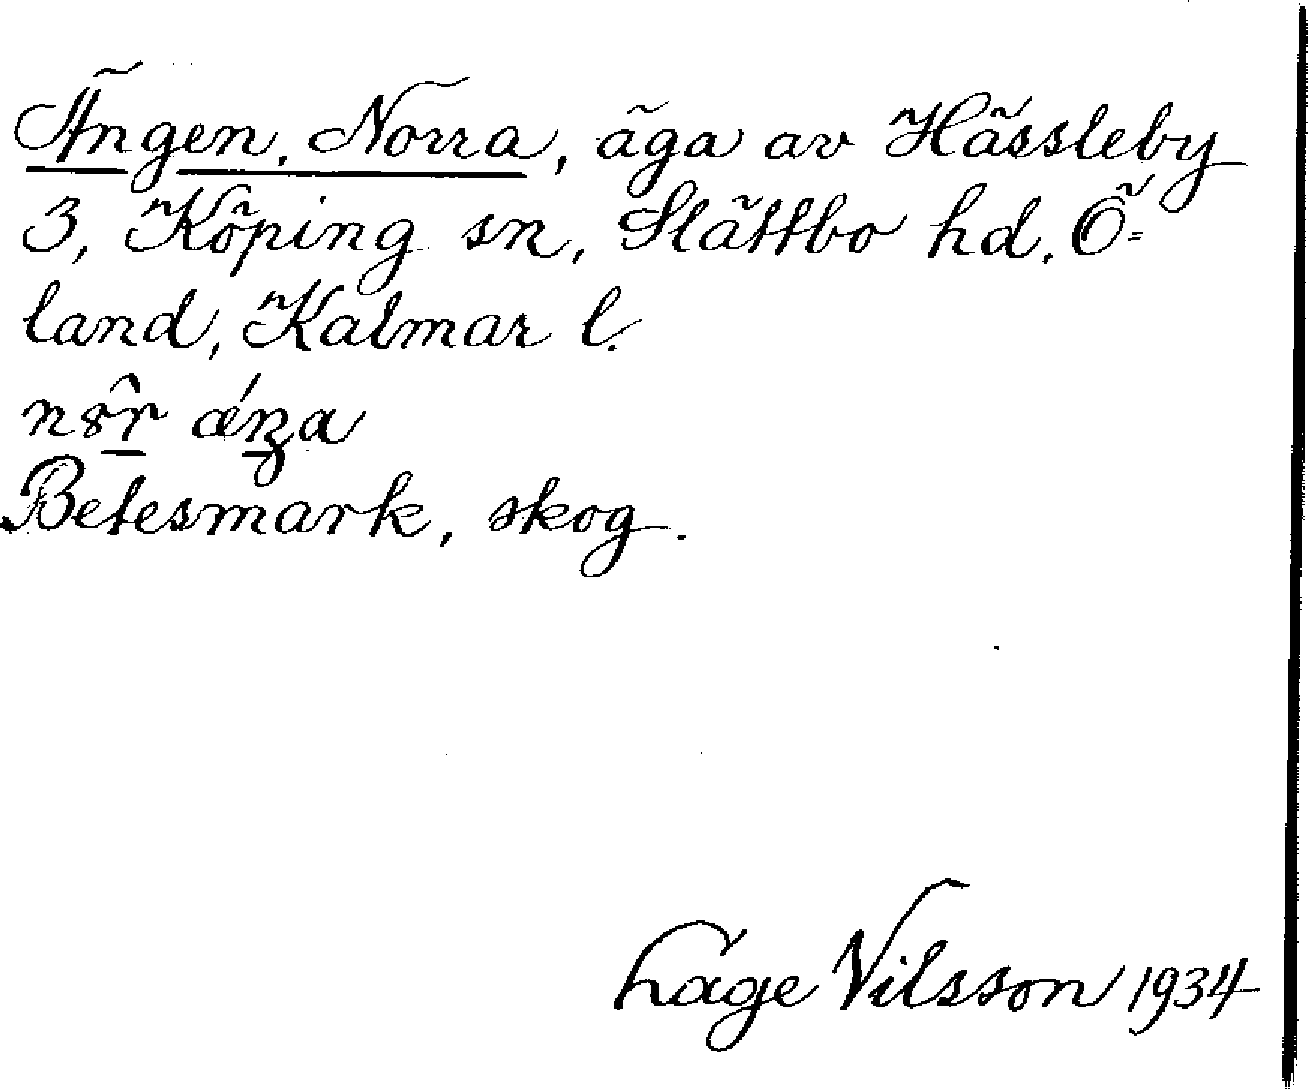 Ängen, Norra, äga av Hässleby
3, Köping sn, Slättbo hd, Ö-
land, Kalmar l.
Betesmark, skog.
Låge Nilsson 1934